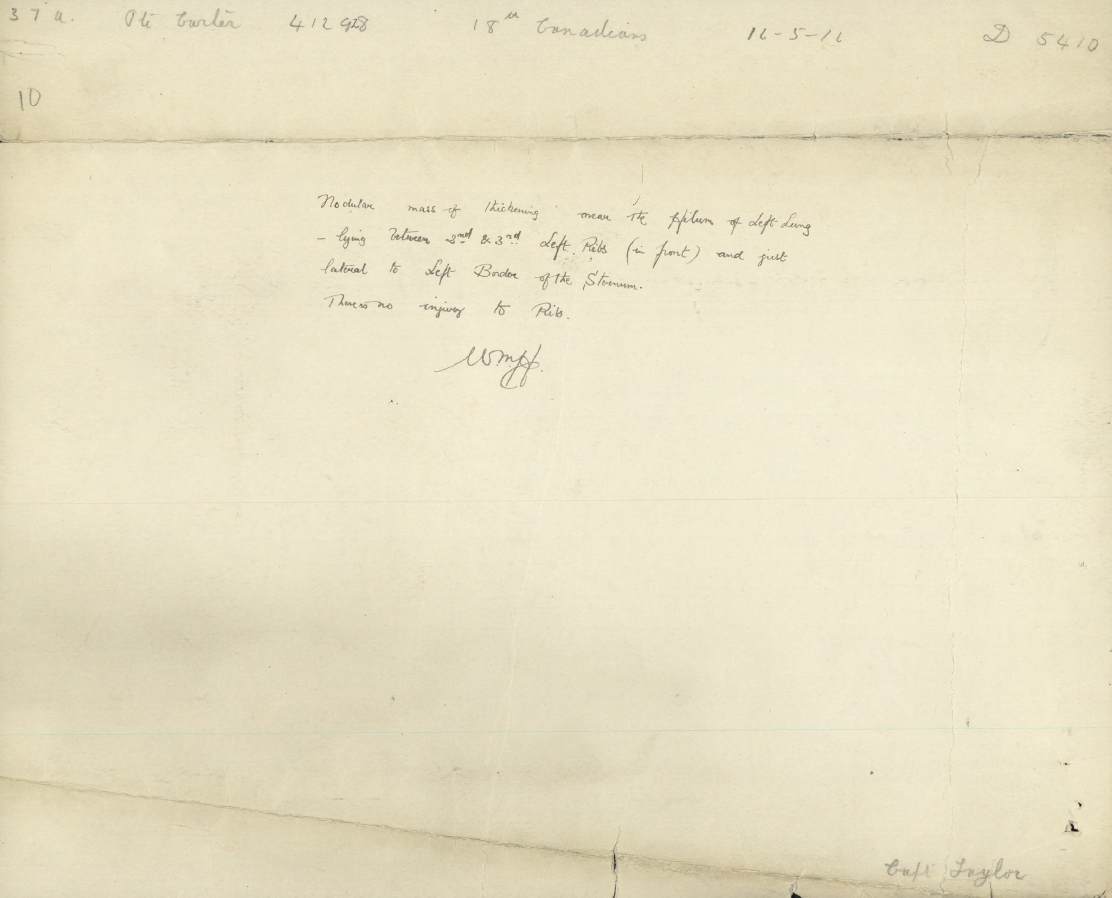 37a. Pte Carter 412928 18th Canadians 16-5-16 D 5410
10
Nodular mass of thickening near the Hilum of Left Lung
- lying between 2nd & 3rd Left Ribs (in front) and just
lateral to Left Border of the Sternum.
There is no injury to Ribs.
Capt Taylor